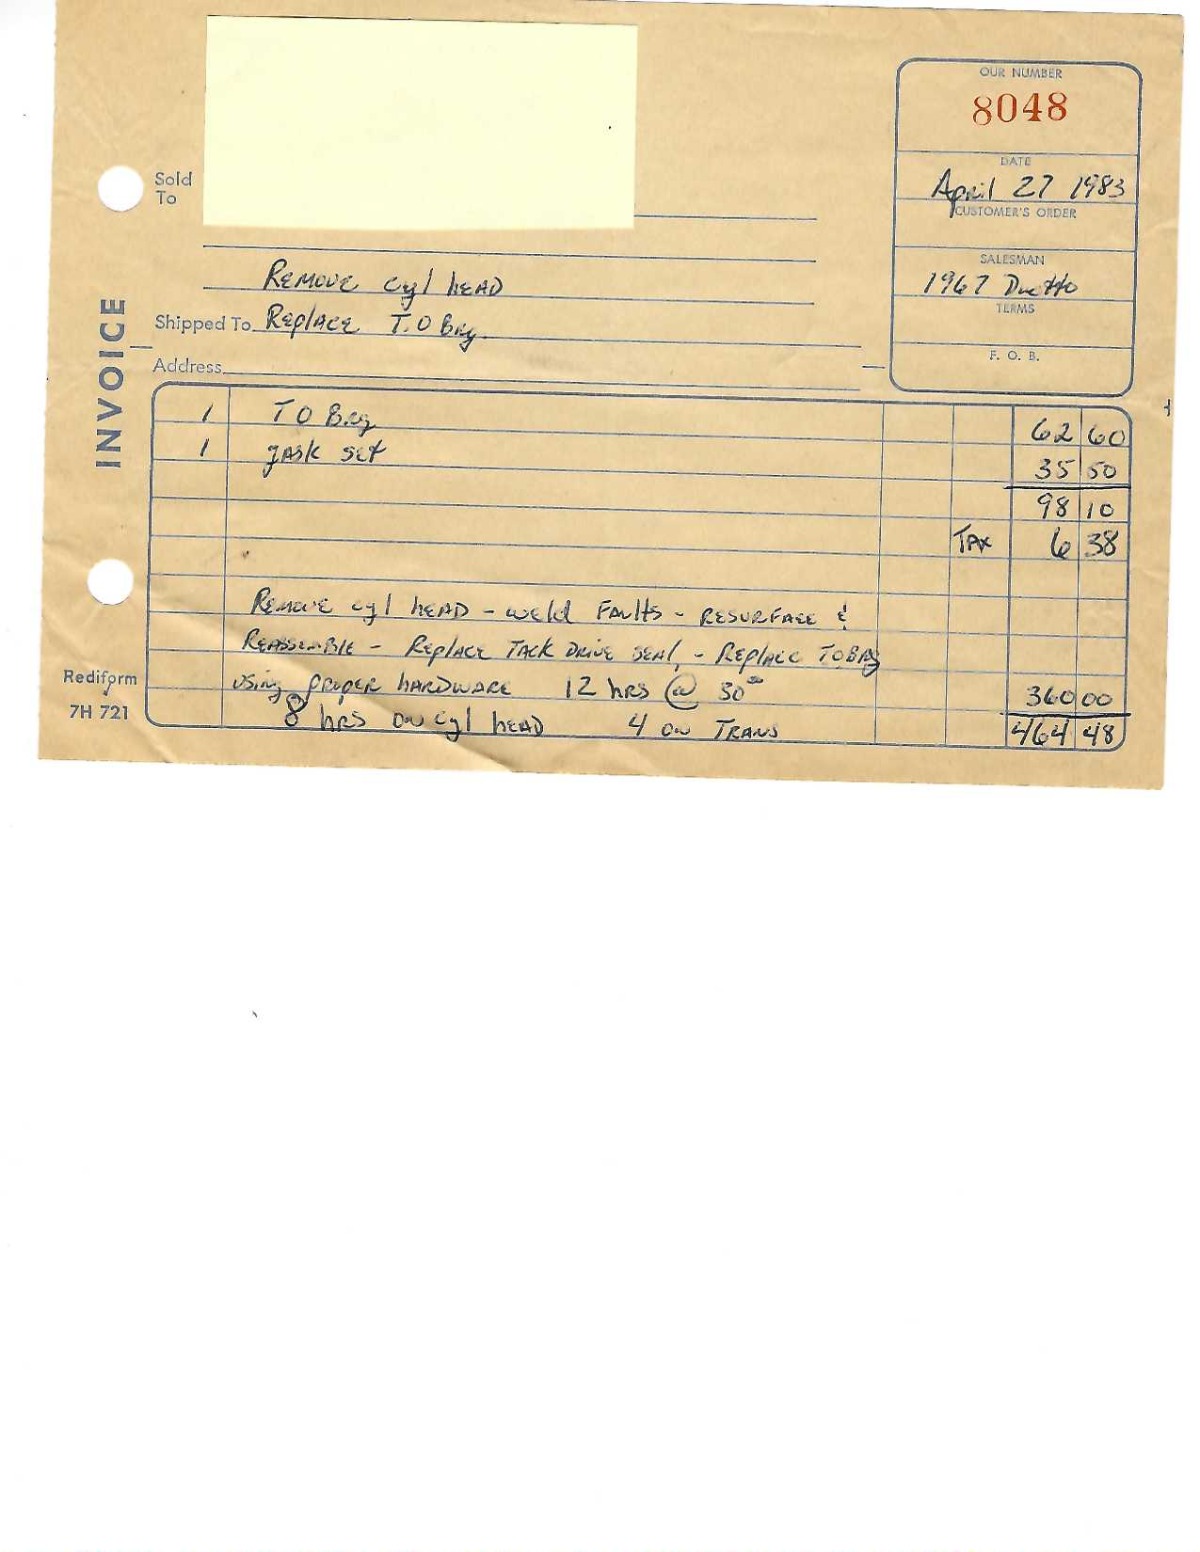 OUR NUMBER
8048
DATE
April 27 1983
CUSTOMER'S ORDER
SALESMAN
1967 Duetto
TERMS
F. O. B.
Sold
To
Remove cyl head
Shipped To Replace T.O Brg
Address
INVOICE
1 T O Brg 62 60
1 gask set 35 50
98 10
TAX 6 38
Remove cyl head - weld faults - resurface &
Reassemble - Replace tack drive seal, - Replace TOBrg
using proper hardware 12 hrs @ 30 00 360 00
8 hrs on cyl head 4 on Trans 464 48
Rediform
7H 721